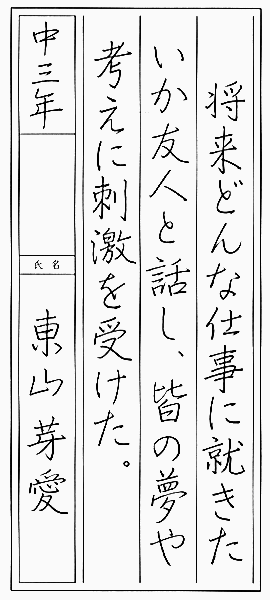 将来どんな仕事に就きた
いか友人と話し、皆の夢や
考えに刺激を受けた。
中三年
氏名
東山芽愛